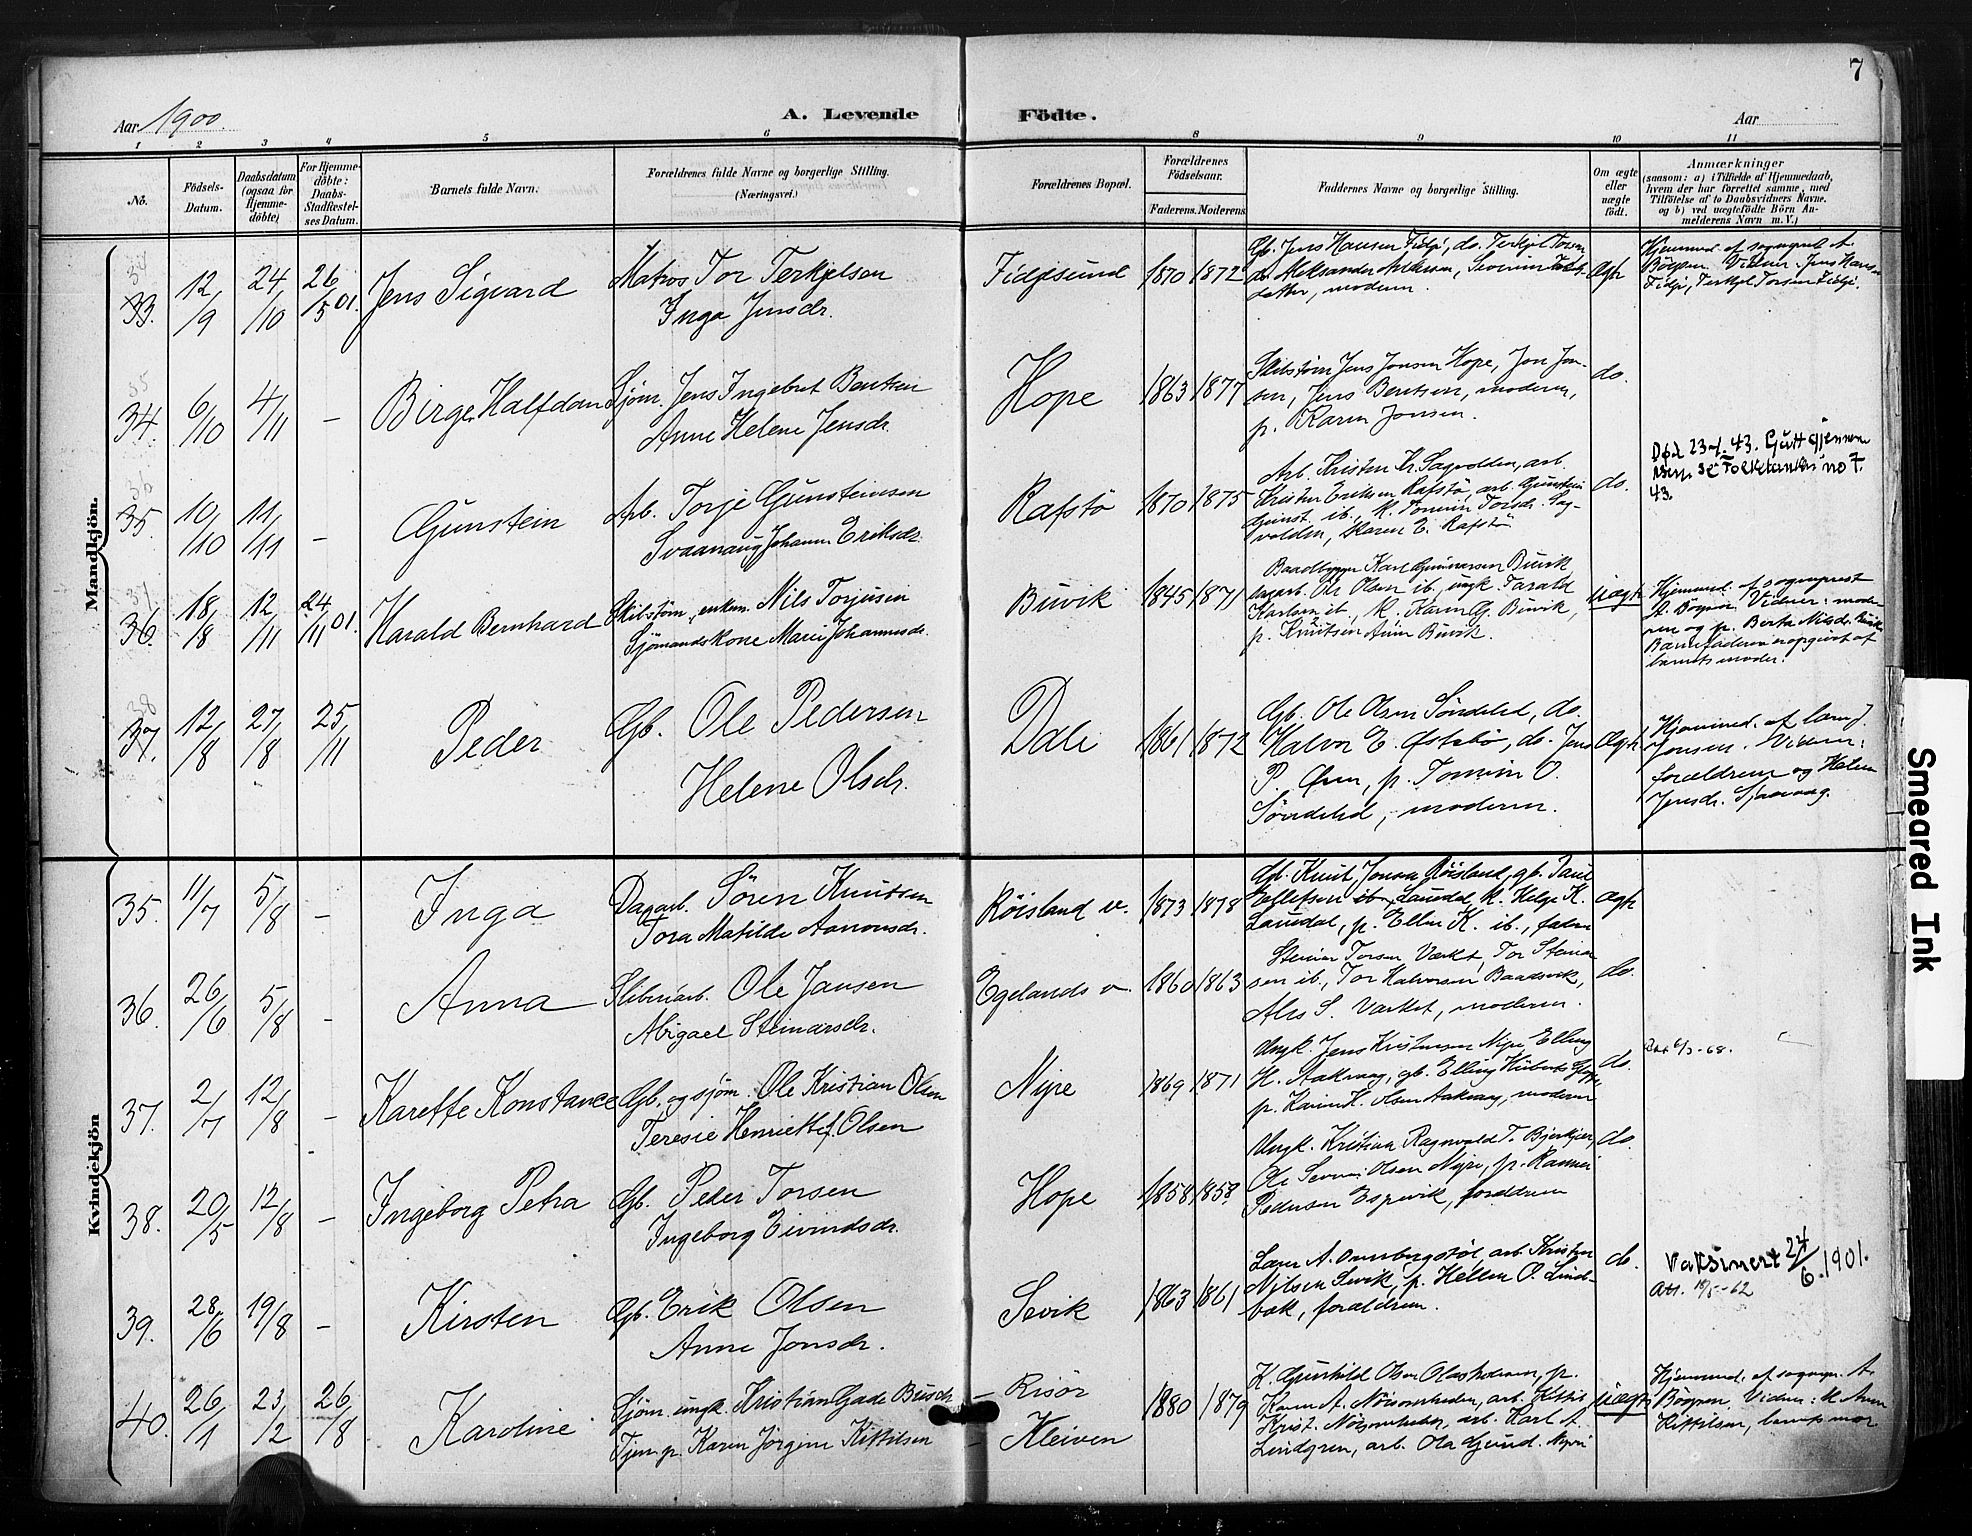 7
Aar 1900.
A. Levende Födte.
Aar
1 2 3 4 5 6 8 9 10 11
No.
Födsels-Datum.
Daabsdatum (ogsaa for Hjemme-döbte)
For Hjemme-döbte: Daabs-Stadfæstel-ses Datum.
Barnets fulde Navn.
Forældrenes fulde Navne og borgerlige Stilling.
(Næringsvei.)
Forældrenes Bopæl.
Forældrenes Födselsaar.
Faderens. Moderens.
Faddernes Navne og borgerlige Stilling.
Om ægte eller uægte födt.
Anmærkninger
(saasom: a) i Tilfælde af Hjemmedaab,
hvem der har forrettet samme, med
Tilföielse af to Daabsvidners Navne.
og b) ved uægtefödte Börn An-
melderens Navn m. V.)
Mandkjön.
34
33. 12/9 24/10 26/5 01. Jens Sigvard
Matros Tor Terkjelsen
Inga Jensdr.
Fidjesund 1870 1872
Gb. Jens Hansen Fidje, do. Terkjel Torsen
do Aleksander Andersen,
datter, moderen.
ægte
Hjemmed. af sognepræst A.
Bögen. Vidner: Jens Hansen
Fidje, Terkjel Torsen Fidje.
35
34. 6/10 4/11 – Birger Halfdan
Sjöm. Jens Ingebret Bentsen
Anne Helene Jensdr.
Hope 1863 1877
Skibstöm. Jens Jonsen Hope, Jon Jon-
sen, Jens Bentsen, moderen,
p. Karen Jonsen.
do.
36
35. 10/10 11/11 – Gunstein
Arb. Torje Gunsteinsen
Svaanaug Johanne Eriksdr.
Rafstö 1870 1875
Arb. Kristen Kr. Sagvolden, arb.
Kristen Eriksen Rafstö, arb. Gunstein
Gunst. ib., K. Tomine Torsdr. Sag-
volden, Karen E. Rafstö
do.
Död 43.
43.
37
36. 18/8 12/11 24/11 01. Harald Bernhard
Skibstöm., enkem. Nils Torjusen
Sjömandskone Marie Johannesdr.
Buvik 1845 1871
Baadbygger Karl Gunnarsen Buvik
dagarb. Ole Olsen ib., ungk. Tarald
Karlsen ib., K. Karen G. Buvik,
p. Knutsen Buvik.
uægte
Hjemmed. af sognepræst
A. Bögen. Vidner: mode-
ren og p. Berte Nilsdr. Buvik
Barnefaderen er opgivet af
barnets moder.
38
37. 12/8 27/8 25/11 Peder
Gb. Ole Pedersen
Helene Olsdr.
Dale 1861 1872
Gb. Ole Olsen Söndeled, do.
Halvor E. Östebö, do. Jens
P. Öen, p. Tomine O.
Söndeled, moderen.
Ægte
Hjemmed. af
Jensen. Vidner:
forældrene og Helene
Jensdr. Sjaavaag.
Kvindekjön
35. 11/7 5/8 – Inga
Dagarb. Sören Knutsen
Tora Matilde Aanonsdr.
Röisland v. 1873 1878
Gb. Knut Jonsen Röisland, gb. Tarje
Ellefsen ib, Laudal, K. Helge K.
Laudal, p. Ellen K. ib., faderen
ægte
36. 26/6 5/8 – Anna
Sliberiarb. Ole Jansen
Abigael Steinarsdr.
Egelands v. 1860 1863
Steinar Torsen Værket, Tor Steinar-
sen ib., Tor Halvorsen Baadsvik,
Ales S. Værket, moderen.
do.
37. 2/7 12/8 – Karette Konstance
Gb. og sjöm. Ole Kristian Olsen
Teresie Henriette f. Olsen
Nipe 1869 1871
Ungk. Jens Kristensen Nipe Elling
H. Aakvaag, gb. Elling Hübert
p. Karine K. Olsen Aakvaag, moderen
do.
6/3-68.
38. 20/5 12/8 – Ingeborg Petra
Gb. Peder Torsen
Ingeborg Eivindsdr.
Hope 1858 1858
Ungk. Kristian Ragnvald T. Bjerkjær,
Ole Severin Olsen Nipe, p. Rannei
Pedersen Espevik, forældrene
do.
39. 28/6 19/8 – Kirsten
Gb. Erik Olsen
Anne Jonsdr.
Sevik 1863 1861
Lærer A. Omsbergstöl, arb. Kristen
Nilsen Sevik, p. Hellene O. Lind-
bæk, forældrene.
do.
Vaksinert 24/6.1901.
Att. 18/5-62
40. 26/1 23/2 26/8 Karoline
Sjöm. ungk. Kristian Gade Buch
Tjen. p. Karen Jörgine Kittilsen
– Risör
– Kleiven
1880 1879
K. Gunhild Olsen Olasholmen, p.
Karen A. Nörsomheden, arb. Kittil
Krist. Nörsomheden, arb. Karl A.
Lindgren, arb. Ola Gund.
uægte
Hjemmed. af sognepr. A.
Bögen. Vidner: M. Anne
Kittilsen, barnets mor
Smeared Ink